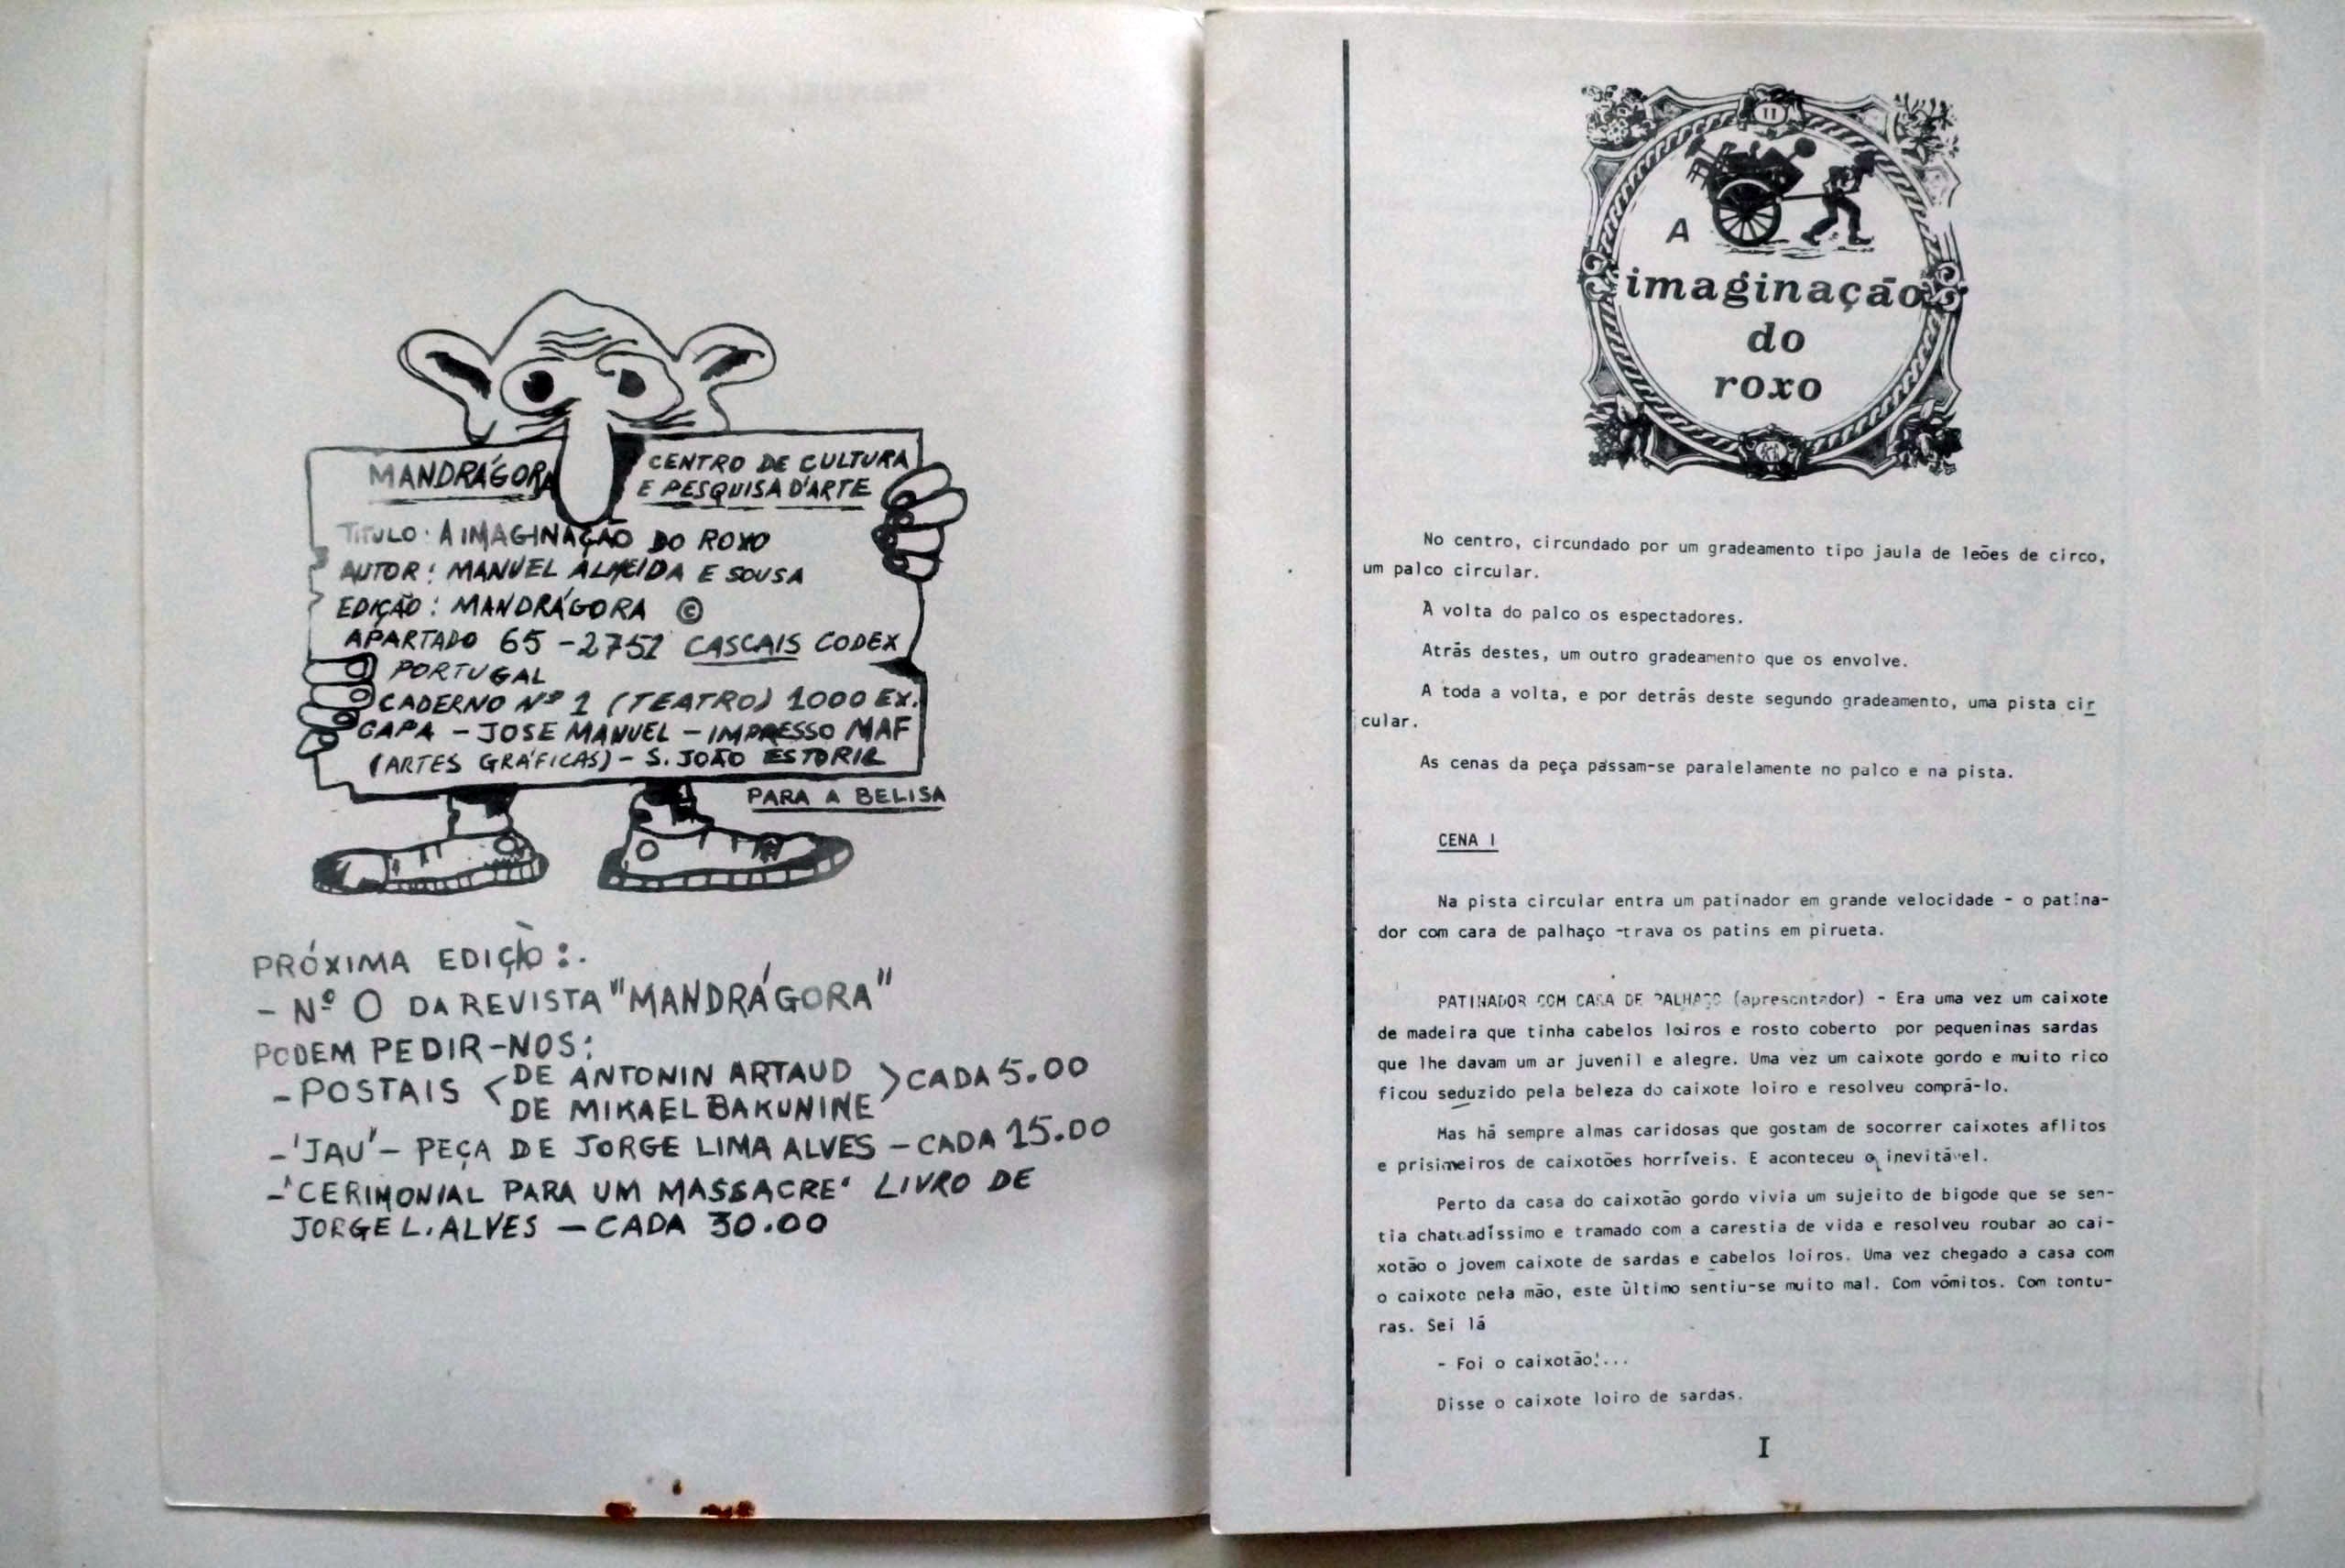 MANDRÁGORA
CENTRO DE CULTURA
E PESQUISA D'ARTE
TITULO: A IMAGINAÇÃO DO ROXO
AUTOR: MANUEL ALMEIDA E SOUSA
EDIÇÃO: MANDRÁGORA ©
APARTADO 65 - 2751 CASCAIS CODEX
PORTUGAL
CADERNO Nº 1 (TEATRO) 1000 EX.
CAPA - JOSE MANUEL - IMPRESSO MAF
(ARTES GRÁFICAS) - S. JOÃO ESTORIL
PARA A BELISA
PRÓXIMA EDIÇÃO:.
- Nº 0 DA REVISTA "MANDRÁGORA"
PODEM PEDIR-NOS:
- POSTAIS < DE ANTONIN ARTAUD
DE MIKAEL BAKUNINE > CADA 5.00
- 'JAU' - PEÇA DE JORGE LIMA ALVES - CADA 15.00
- 'CERIMONIAL PARA UM MASSACRE' LIVRO DE
JORGE L. ALVES - CADA 30.00
A
imaginação
do
roxo
No centro, circundado por um gradeamento tipo jaula de leões de circo,
um palco circular.
À volta do palco os espectadores.
Atrás destes, um outro gradeamento que os envolve.
A toda a volta, e por detrás deste segundo gradeamento, uma pista cir
cular.
As cenas da peça passam-se paralelamente no palco e na pista.
CENA I
Na pista circular entra um patinador em grande velocidade - o patina-
dor com cara de palhaço -trava os patins em pirueta.
PATINADOR COM CARA DE PALHAÇO (apresentador) - Era uma vez um caixote
de madeira que tinha cabelos loiros e rosto coberto por pequeninas sardas
que lhe davam um ar juvenil e alegre. Uma vez um caixote gordo e muito rico
ficou seduzido pela beleza do caixote loiro e resolveu comprá-lo.
Mas há sempre almas caridosas que gostam de socorrer caixotes aflitos
e prisimeiros de caixotões horríveis. E aconteceu o inevitável.
Perto da casa do caixotão gordo vivia um sujeito de bigode que se sen-
tia chateadíssimo e tramado com a carestia de vida e resolveu roubar ao cai-
xotão o jovem caixote de sardas e cabelos loiros. Uma vez chegado a casa com
o caixote pela mão, este último sentiu-se muito mal. Com vómitos. Com tontu-
ras. Sei lá
- Foi o caixotão!...
Disse o caixote loiro de sardas.
I